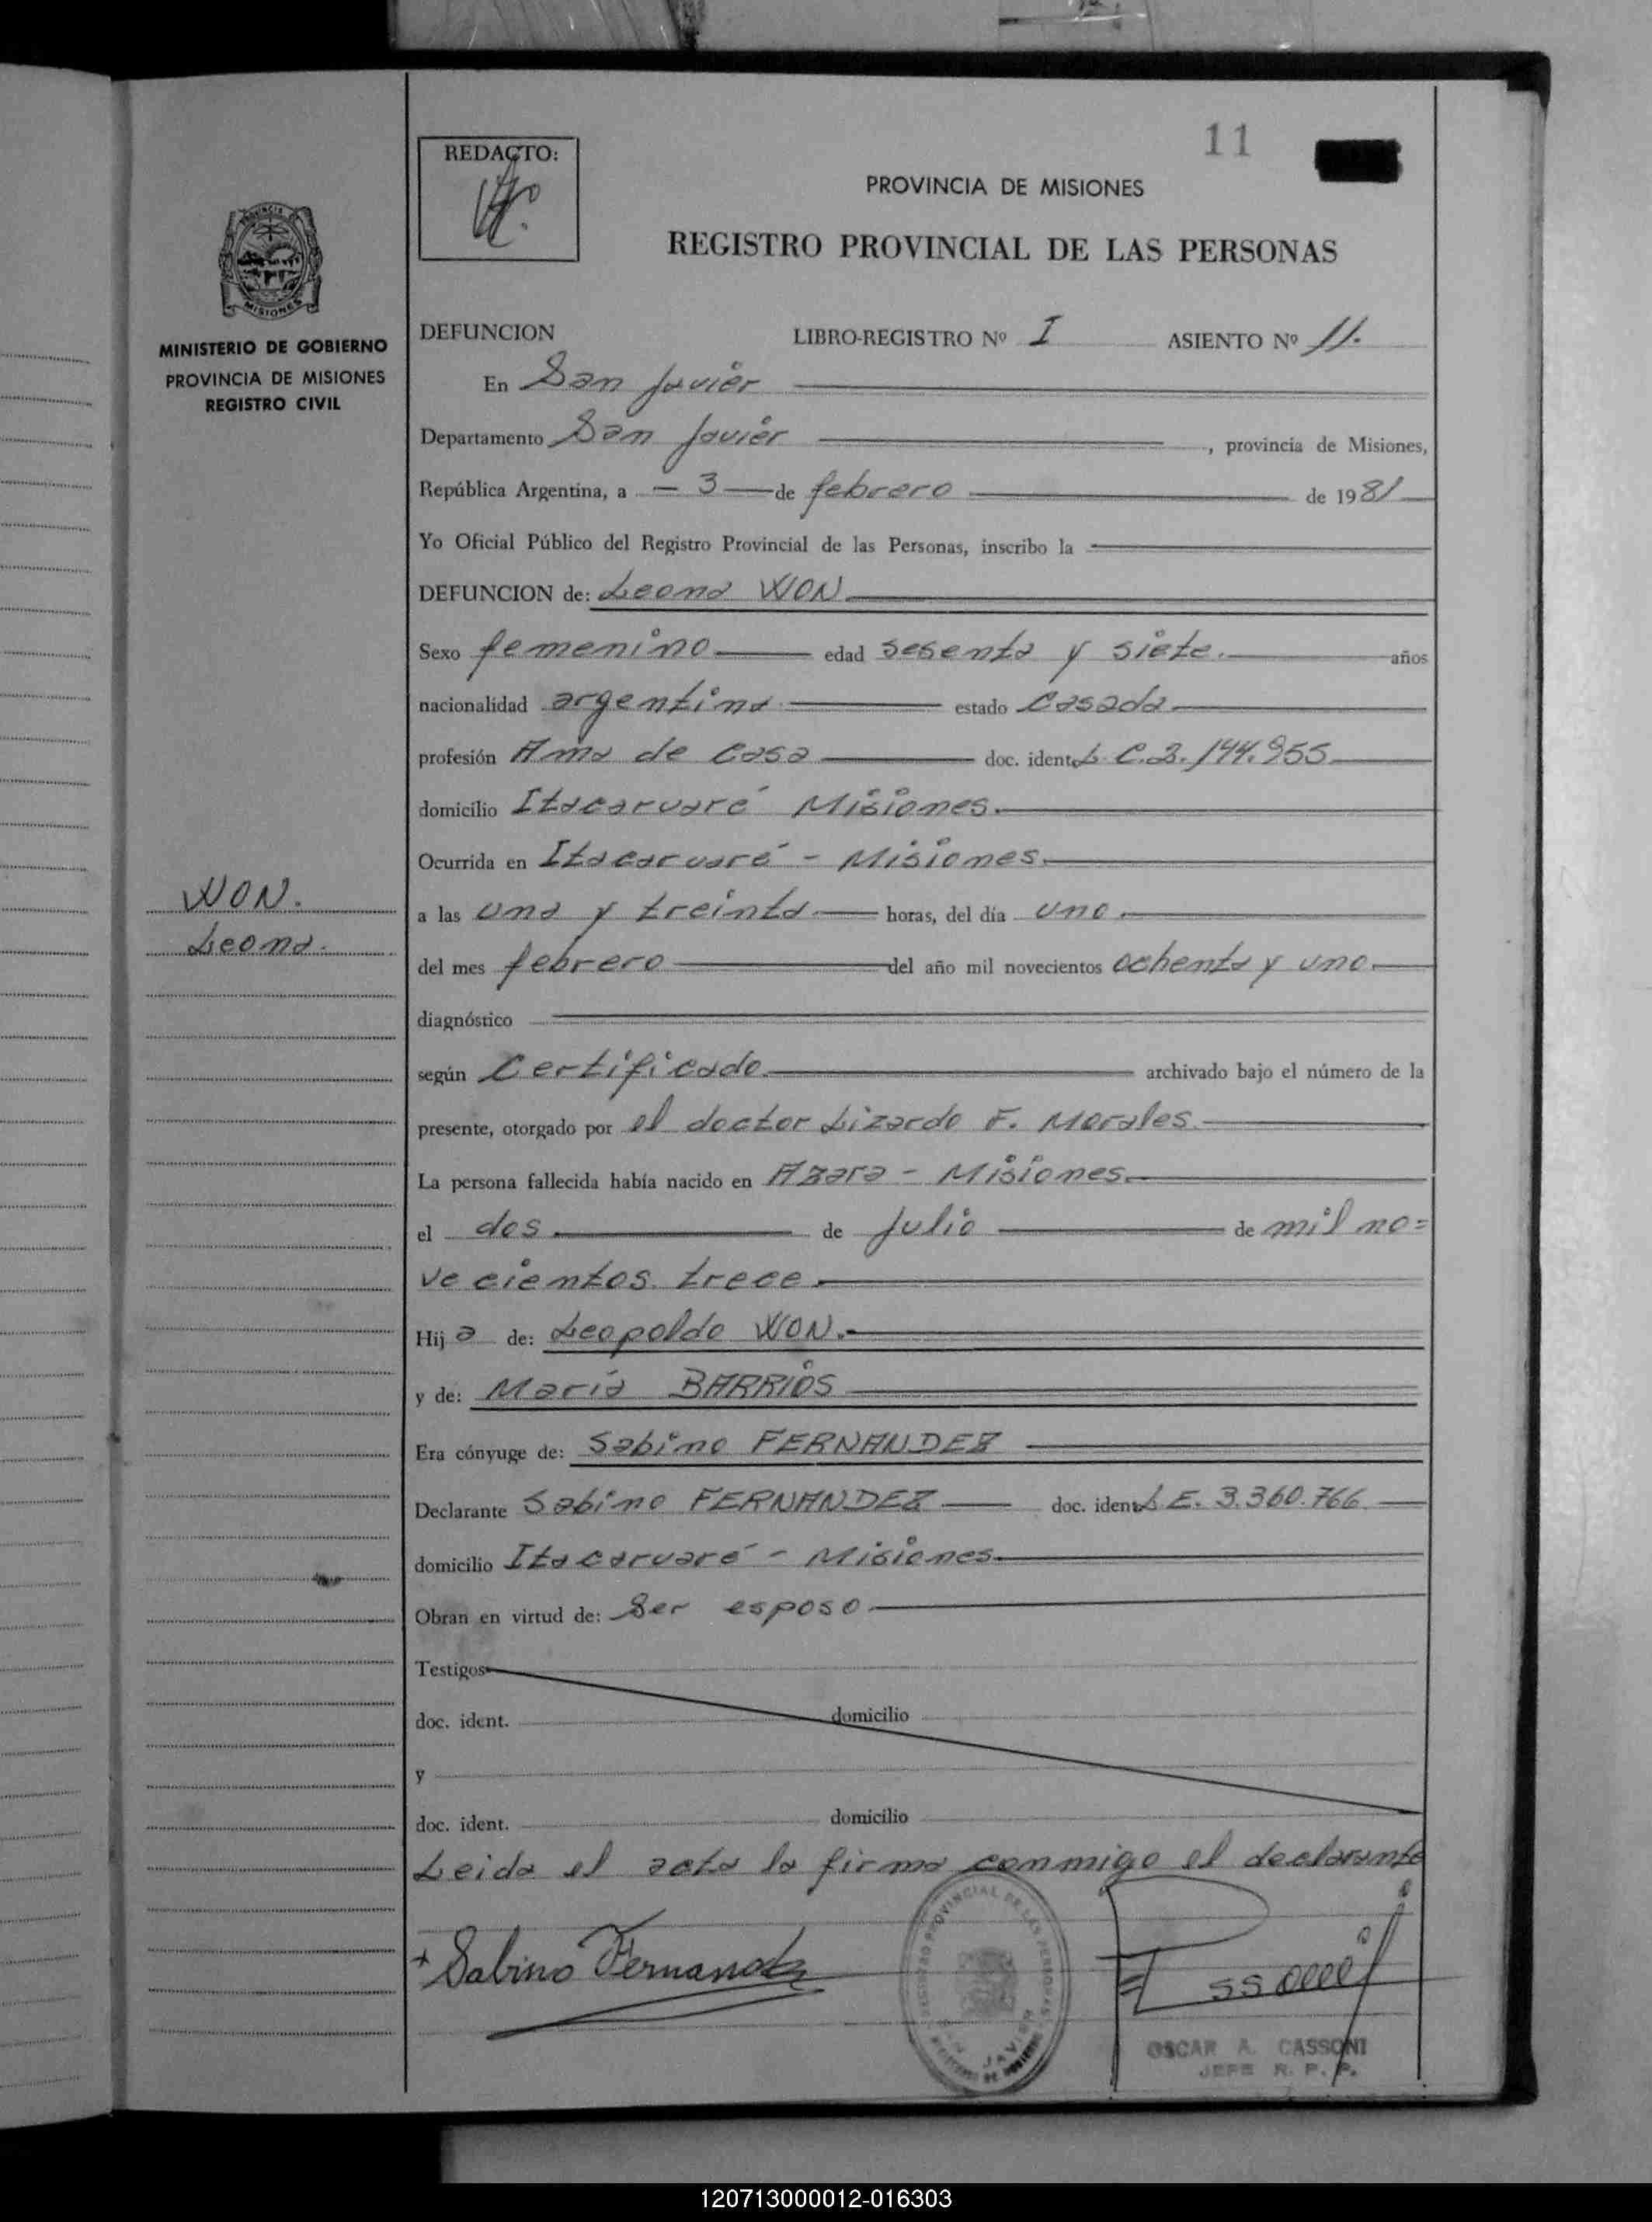 11
REDACTO:
PROVINCIA DE MISIONES
REGISTRO PROVINCIAL DE LAS PERSONAS
PROVINCIA DE
MISIONES
MINISTERIO DE GOBIERNO
PROVINCIA DE MISIONES
REGISTRO CIVIL
DEFUNCION LIBRO-REGISTRO Nº I ASIENTO Nº 11.
En San Javier
Departamento San Javier, provincia de Misiones,
República Argentina, a - 3 - de febrero de 1981
Yo Oficial Público del Registro Provincial de las Personas, inscribo la
DEFUNCION de: Leona WON
Sexo femenino edad sesenta y siete. años
nacionalidad argentina estado Casada
profesión Ama de Casa doc. ident. L.C.3.144.955
domicilio Itacaruaré Misiones.
Ocurrida en Itacaruaré - Misiones.
WON.
Leona.
a las una y treinta horas, del día uno
del mes febrero del año mil novecientos ochenta y uno.
diagnóstico
según Certificado archivado bajo el número de la
presente, otorgado por el doctor Lizardo F. Morales
La persona fallecida había nacido en Azara - Misiones
el dos de Julio de mil no=
vecientos trece
Hija de: Leopoldo WON.
y de: María BARRIOS
Era cónyuge de: Sabino FERNANDEZ
Declarante Sabino FERNANDEZ doc. ident. L.E. 3.360.766
domicilio Itacaruaré - Misiones
Obran en virtud de: Ser esposo
Testigos
doc. ident. domicilio
y
doc. ident. domicilio
Leida el acta la firma conmigo el declarante
+ Sabino Fernandez
REGISTRO PROVINCIAL DE LAS PERSONAS
JAVIER
OSCAR A. CASSONI
JEFE R. P. P.
120713000012-016303